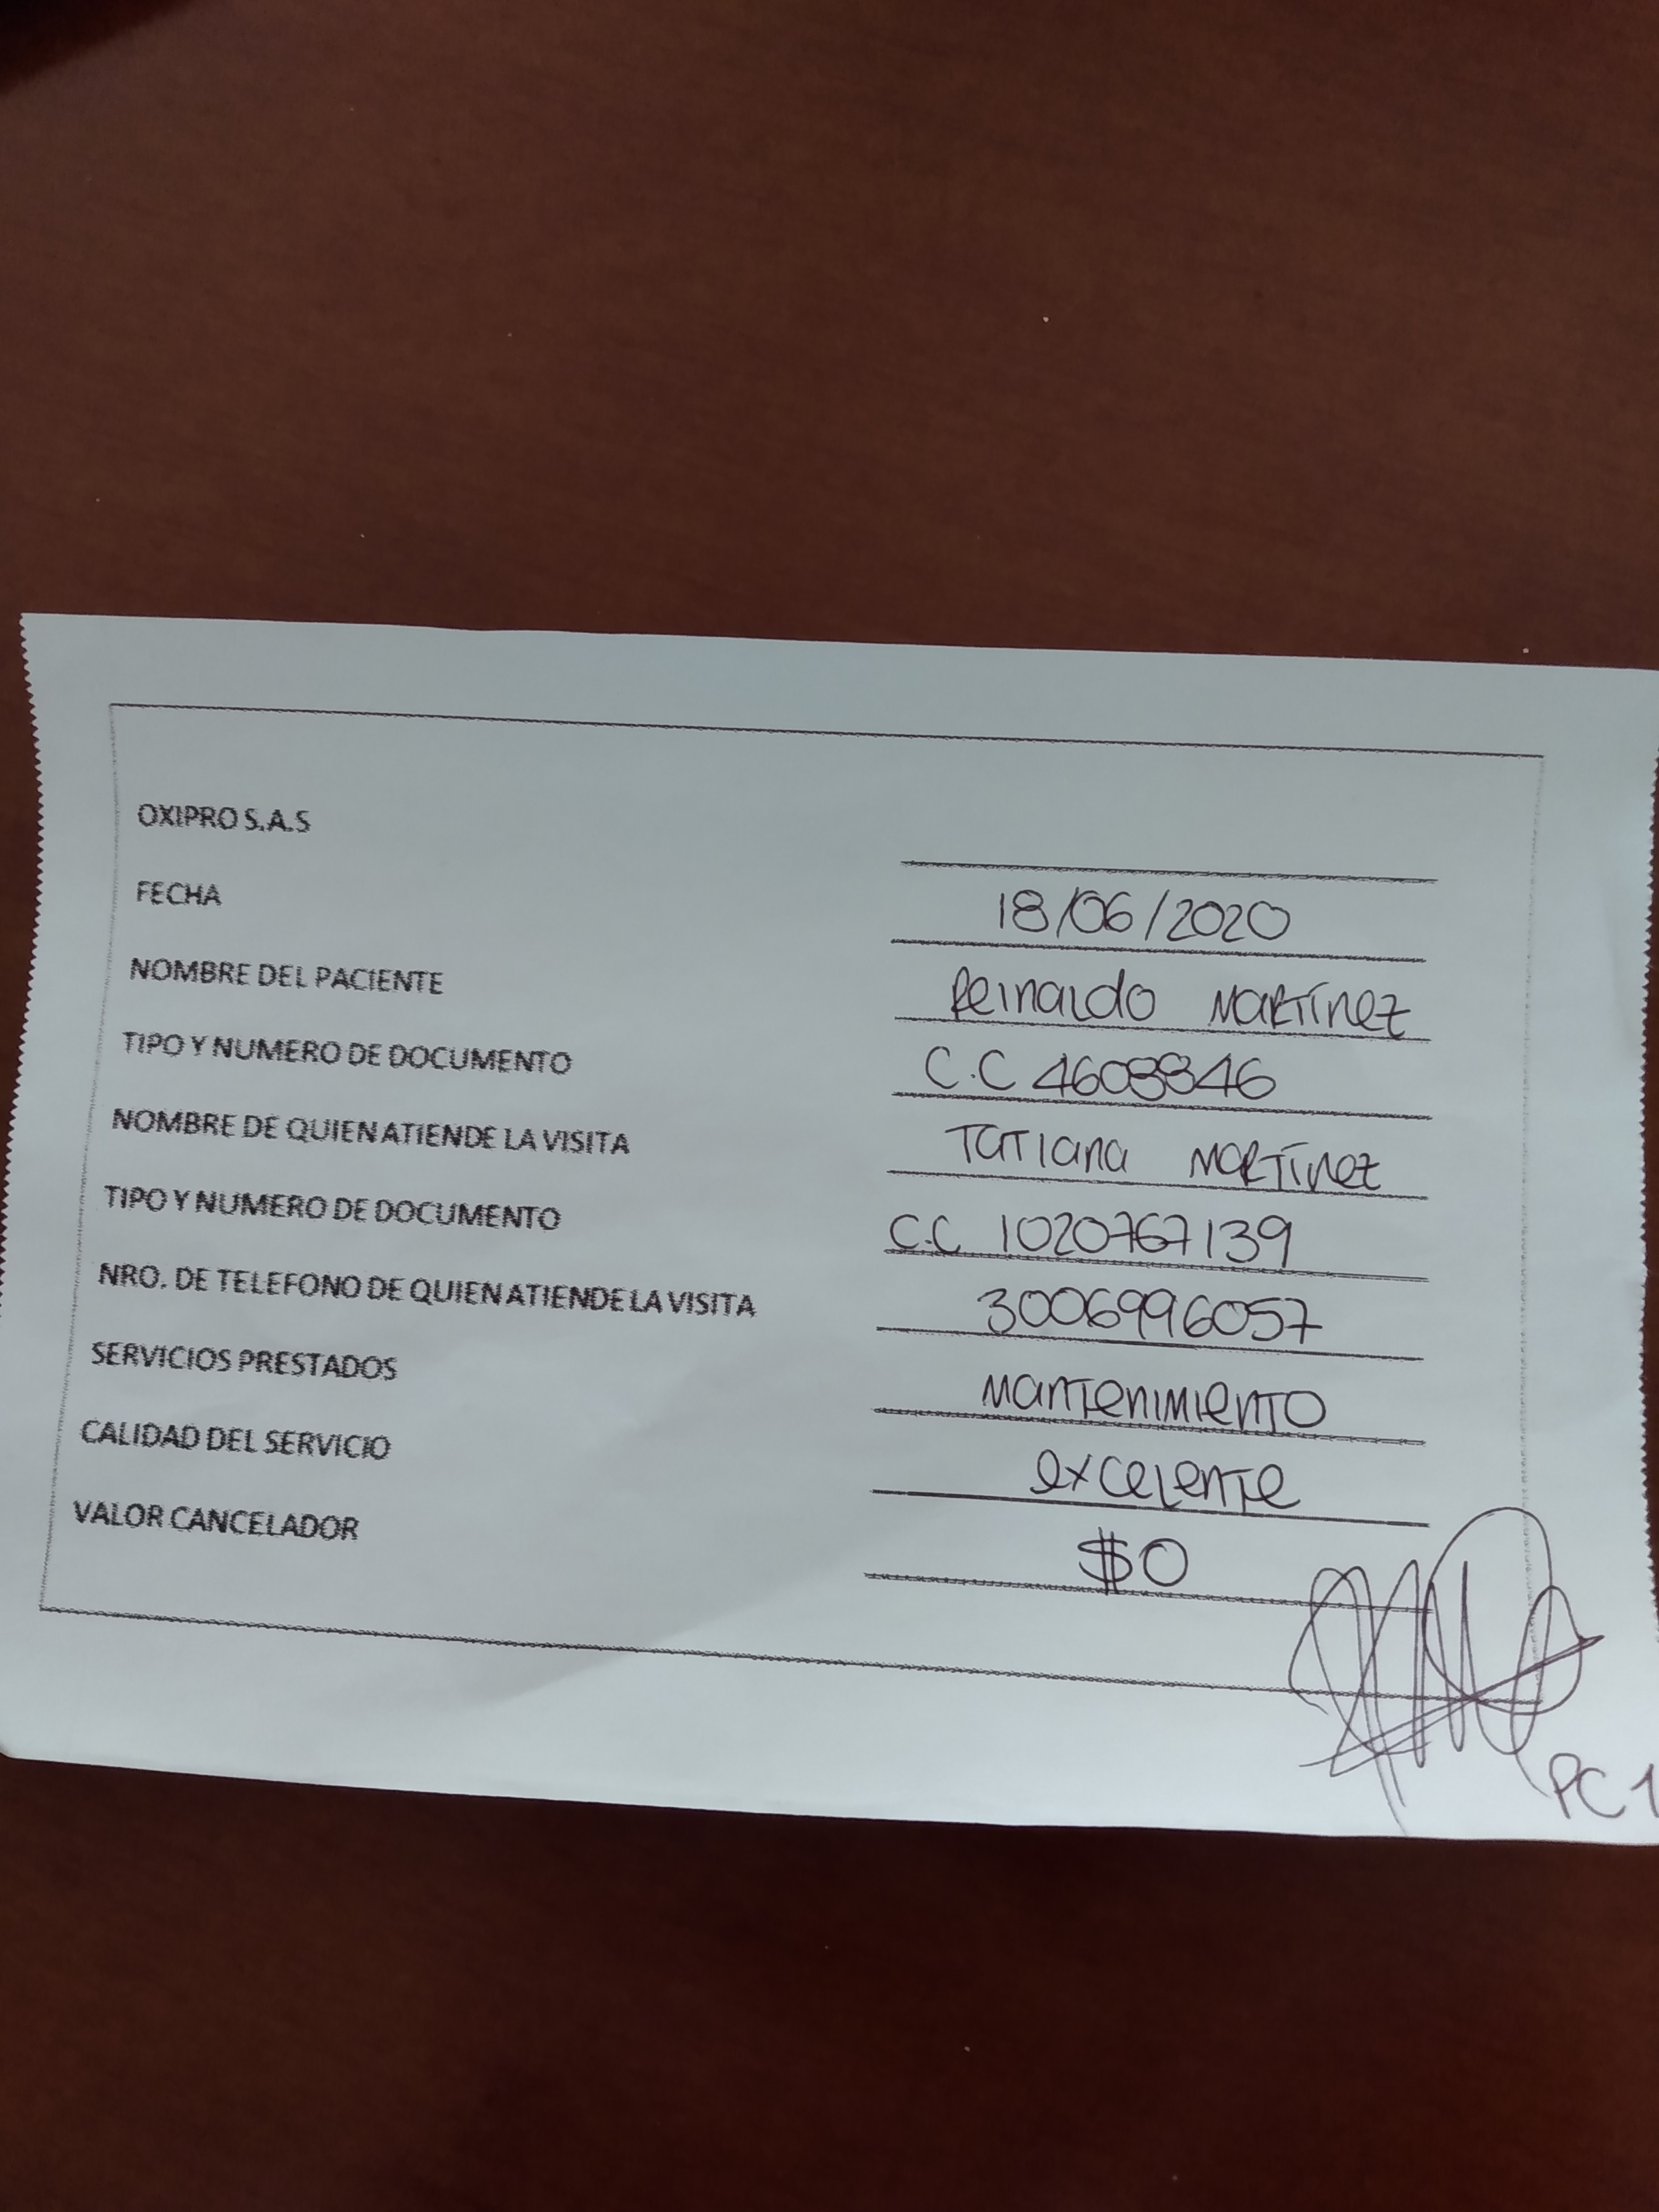 OXIPRO S.A.S
FECHA 18/06/2020
NOMBRE DEL PACIENTE Reinaldo Martínez
TIPO Y NUMERO DE DOCUMENTO C.C 4608846
NOMBRE DE QUIEN ATIENDE LA VISITA Tatiana Martínez
TIPO Y NUMERO DE DOCUMENTO C.C 1020767139
NRO. DE TELEFONO DE QUIEN ATIENDE LA VISITA 3006996057
SERVICIOS PRESTADOS Mantenimiento
CALIDAD DEL SERVICIO excelente
VALOR CANCELADOR $0
PC 1